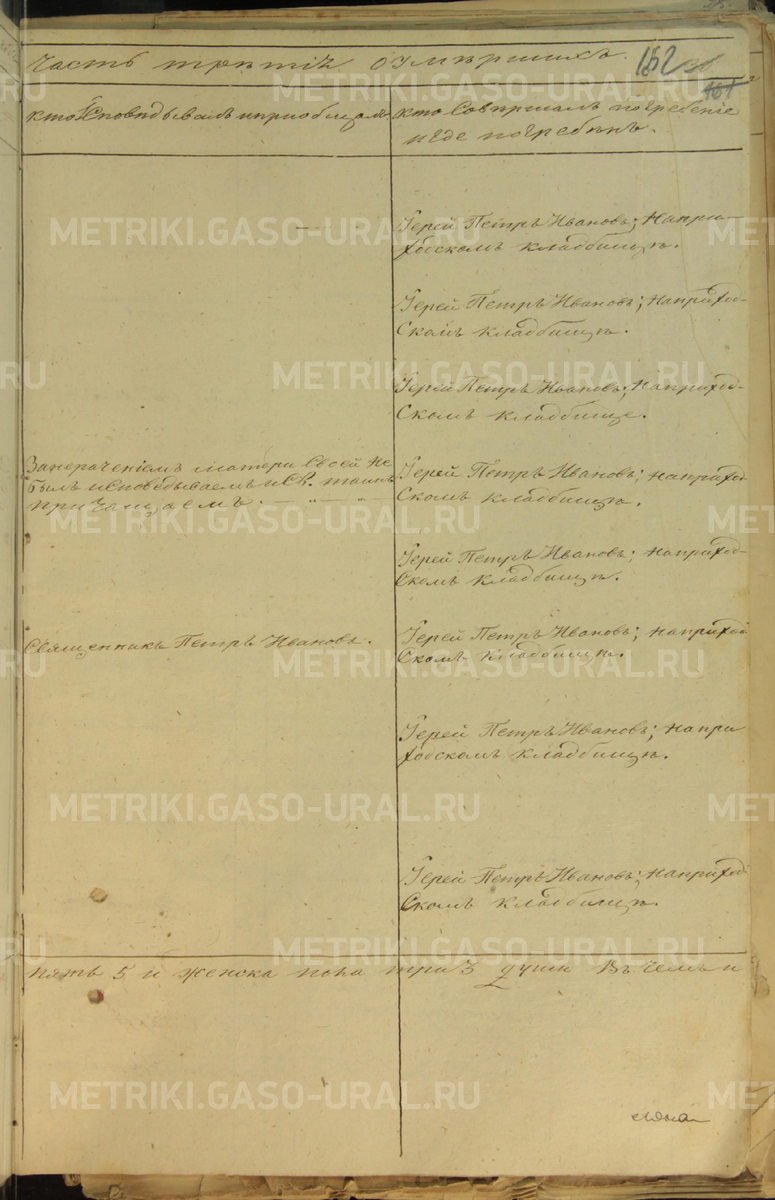 Часть третія о умершихъ. 162
161
кто исповѣдывалъ и приобщалъ
кто совершалъ погребеніе
и где погребенъ.
Іерей Петръ Ивановъ; на при-
ходскомъ кладбищѣ.
Іерей Петръ Ивановъ; на приход-
скомъ кладбищѣ.
Іерей Петръ Ивановъ; на приход-
скомъ кладбище.
матери своей не
былъ исповѣдываемъ и Св. таинъ
причащаемъ.
Іерей Петръ Ивановъ; на приход-
скомъ кладбищѣ.
Іерей Петръ Ивановъ; на приход-
скомъ кладбищѣ.
Священникъ Петръ Ивановъ.
Іерей Петръ Ивановъ; на приход
скомъ кладбищѣ.
Іерей Петръ Ивановъ; на при
ходскомъ кладбищѣ.
Іерей Петръ Ивановъ; на приход
скомъ кладбищѣ.
пять 5 и женска пола три 3 души Въ семъ и
METRIKI.GASO-URAL.RU